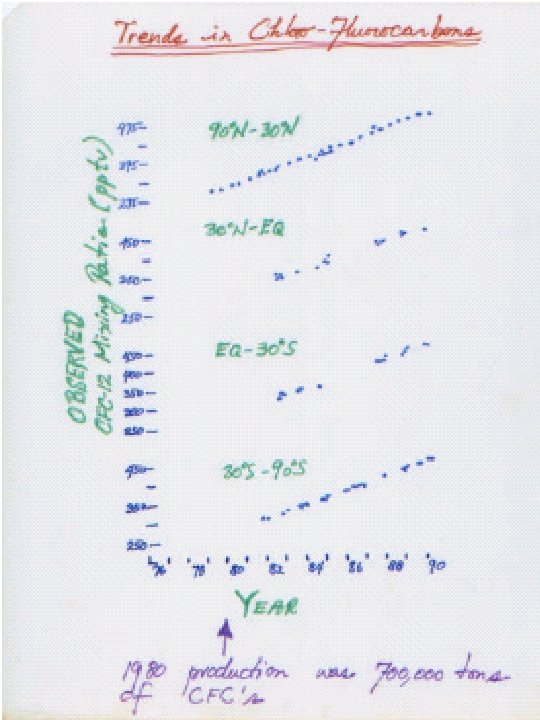 Trends in Chloro-Flurocarbons
OBSERVED
CFC-12 Mixing Ratios (pptv)
90°N-30°N
475
375
275
30°N-EQ
450
350
250
EQ-30°S
450
400
350
300
250
30°S-90°S
450
350
250
76 78 80 82 84 86 88 90
YEAR
1980 production was 700,000 tons
of CFC's